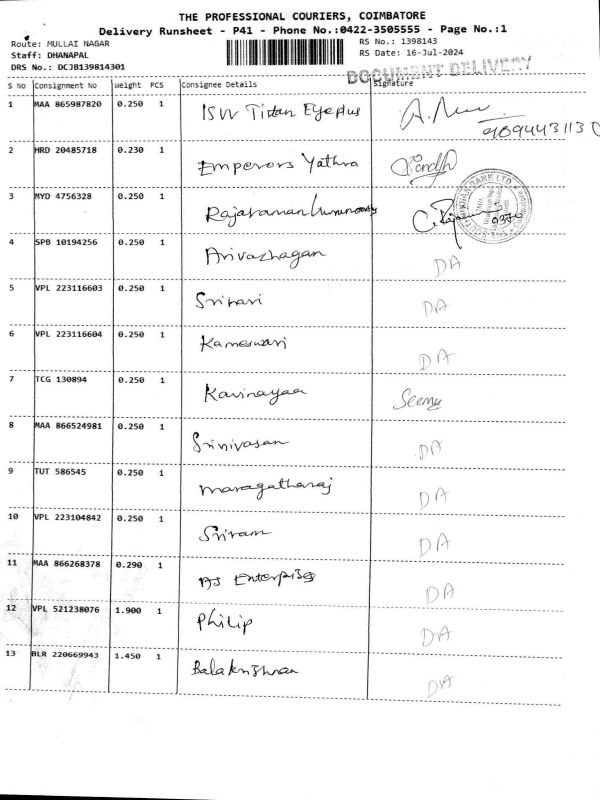 THE PROFESSIONAL COURIERS, COIMBATORE
Delivery Runsheet - P41 - Phone No.:0422-3505555 - Page No.:1
Route: MULLAI NAGAR RS No.: 1398143
Staff: DHANAPAL RS Date: 16-Jul-2024
DRS No.: DCJB139814301
DOCUMENT DELIVERY
S No Consignment No Weight PCS Consignee Details Signature
1 MAA 865987820 0.250 1 ISW Titan Eyeplus
2 HRD 20485718 0.230 1 Emperors Yathra
3 MYD 4756328 0.250 1 Rajaraman
4 SPB 10194256 0.250 1 Arivazhagan DA
5 VPL 223116603 0.250 1 Srihari DA
6 VPL 223116604 0.250 1 Kameswari DA
7 TCG 130894 0.250 1 Kavinayaa
8 MAA 866524981 0.250 1 Srinivasan DA
9 TUT 586545 0.250 1 maragatharaj DA
10 VPL 223104842 0.250 1 Sriram DA
11 MAA 866268378 0.290 1 Enterprises DA
12 VPL 521238076 1.900 1 Philip DA
13 BLR 220669943 1.450 1 Balakrishnan DA